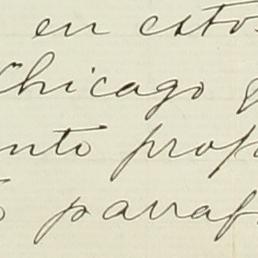 en estos
Chicago
ento prop
parraf